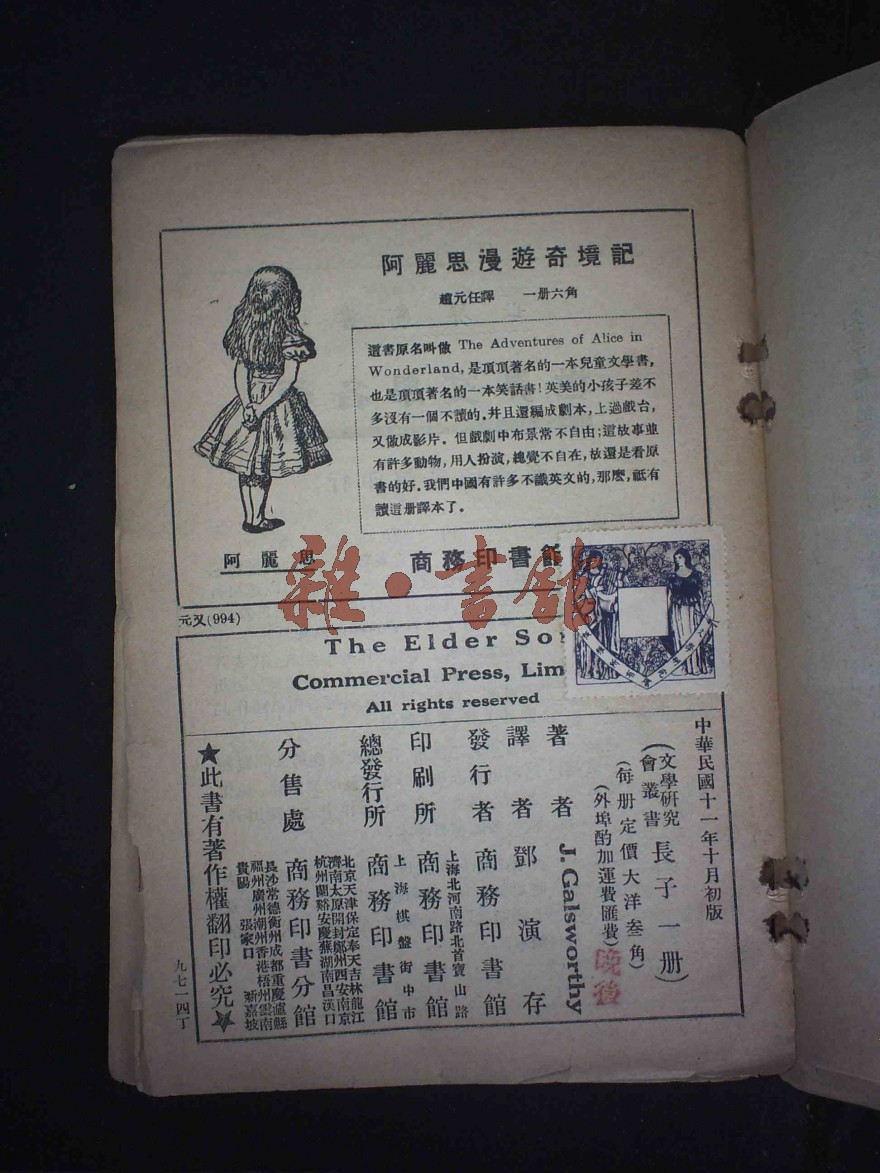 阿麗思漫遊奇境記
趙元任譯 一册六角
這書原名叫做 The Adventures of Alice in
Wonderland, 是項項著名的一本兒童文學書,
也是項項著名的一本笑話書!英美的小孩子差不
多沒有一個不讀的.并且還編成劇本,上過戲台,
又做成影片. 但戲劇中布景常不自由;這故事並
有許多動物,用人扮演,總覺不自在,故還是看原
書的好.我們中國有許多不識英文的,那麽,祗有
讀這册譯本了.
阿麗思
商務印書館
雜·書舘
元又(994)
The Elder Son
Commercial Press, Lim
All rights reserved
中華民國十一年十月初版
(文學硏究會叢書 長子一册)
(每册定價大洋叁角)
(外埠酌加運費匯費)
晚後
著者 J. Galsworthy
譯者 鄧演存
發行者 商務印書館
上海北河南路北首寶山路
印刷所 商務印書館
上海棋盤街中市
總發行所 商務印書館
北京天津保定奉天吉林龍江
濟南太原開封鄭州西安南京
杭州蘭谿安慶蕪湖南昌漢口
分售處 商務印書分館
長沙常德衡州成都重慶瀘縣
福州廣州潮州香港梧州雲南
貴陽 張家口 新嘉坡
★此書有著作權翻印必究★
九七一四丁